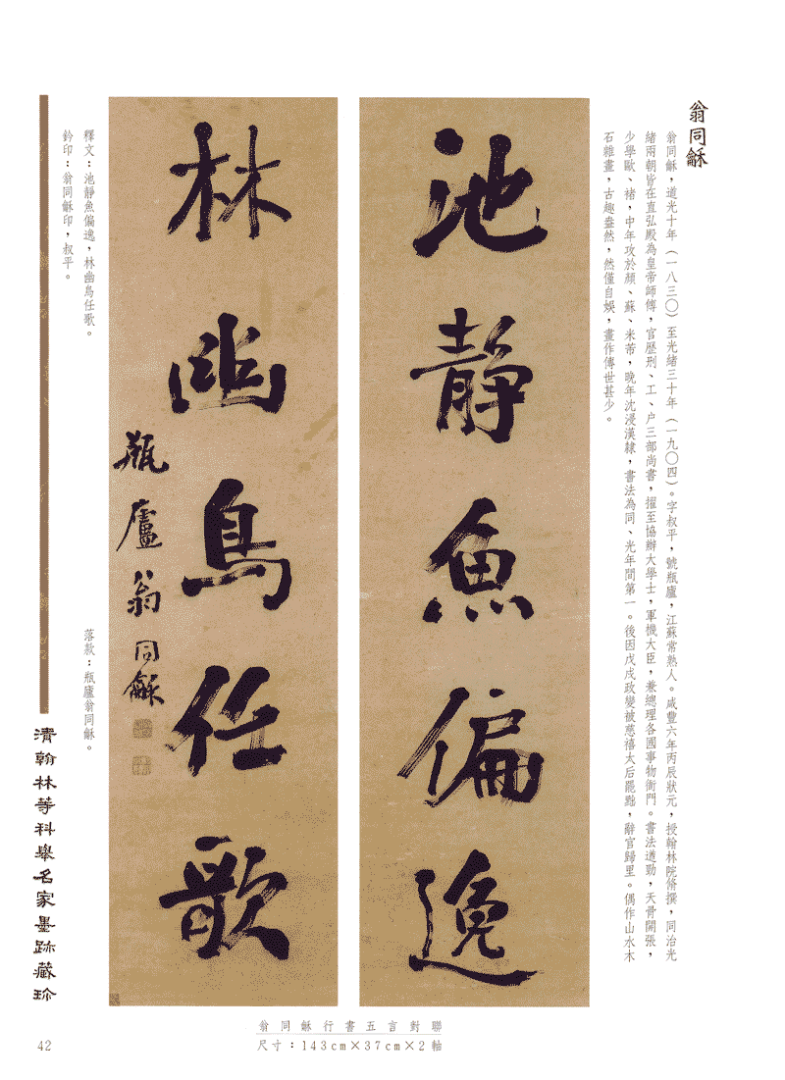 翁同龢
翁同龢，道光十年（一八三〇）至光緒三十年（一九〇四）。字叔平，號瓶廬，江蘇常熟人。咸豐六年丙辰狀元，授翰林院脩撰，同治光
緒兩朝皆在直弘殿為皇帝師傅，官歷刑、工、户三部尚書，擢至協辦大學士，軍機大臣，兼總理各國事物衙門。書法遒勁，天骨開張，
少學歐、褚，中年攻於顏、蘇、米芾，晚年沈浸漢隸，書法為同、光年間第一。後因戊戌政變被慈禧太后罷黜，辭官歸里。偶作山水木
石雜畫，古趣盎然，然僅自娛，畫作傳世甚少。
池靜魚偏逸
林幽鳥任歌
瓶廬翁同龢
釋文：池靜魚偏逸，林幽鳥任歌。
落款：瓶廬翁同龢。
鈐印：翁同龢印，叔平。
清翰林等科舉名家墨跡藏珍
翁同龢行書五言對聯
尺寸：143cm×37cm×2軸
42